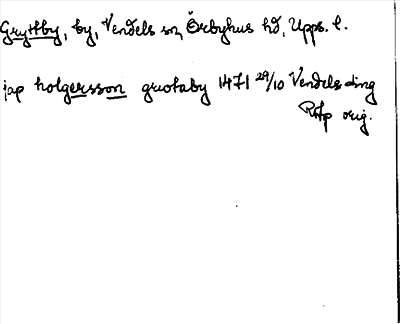 Gryttby, by, Vendels sn, Örbyhus hd, Upps. l.
jap holgersson gruotaby 1471 29/10 Vendels ding
RAp orig.